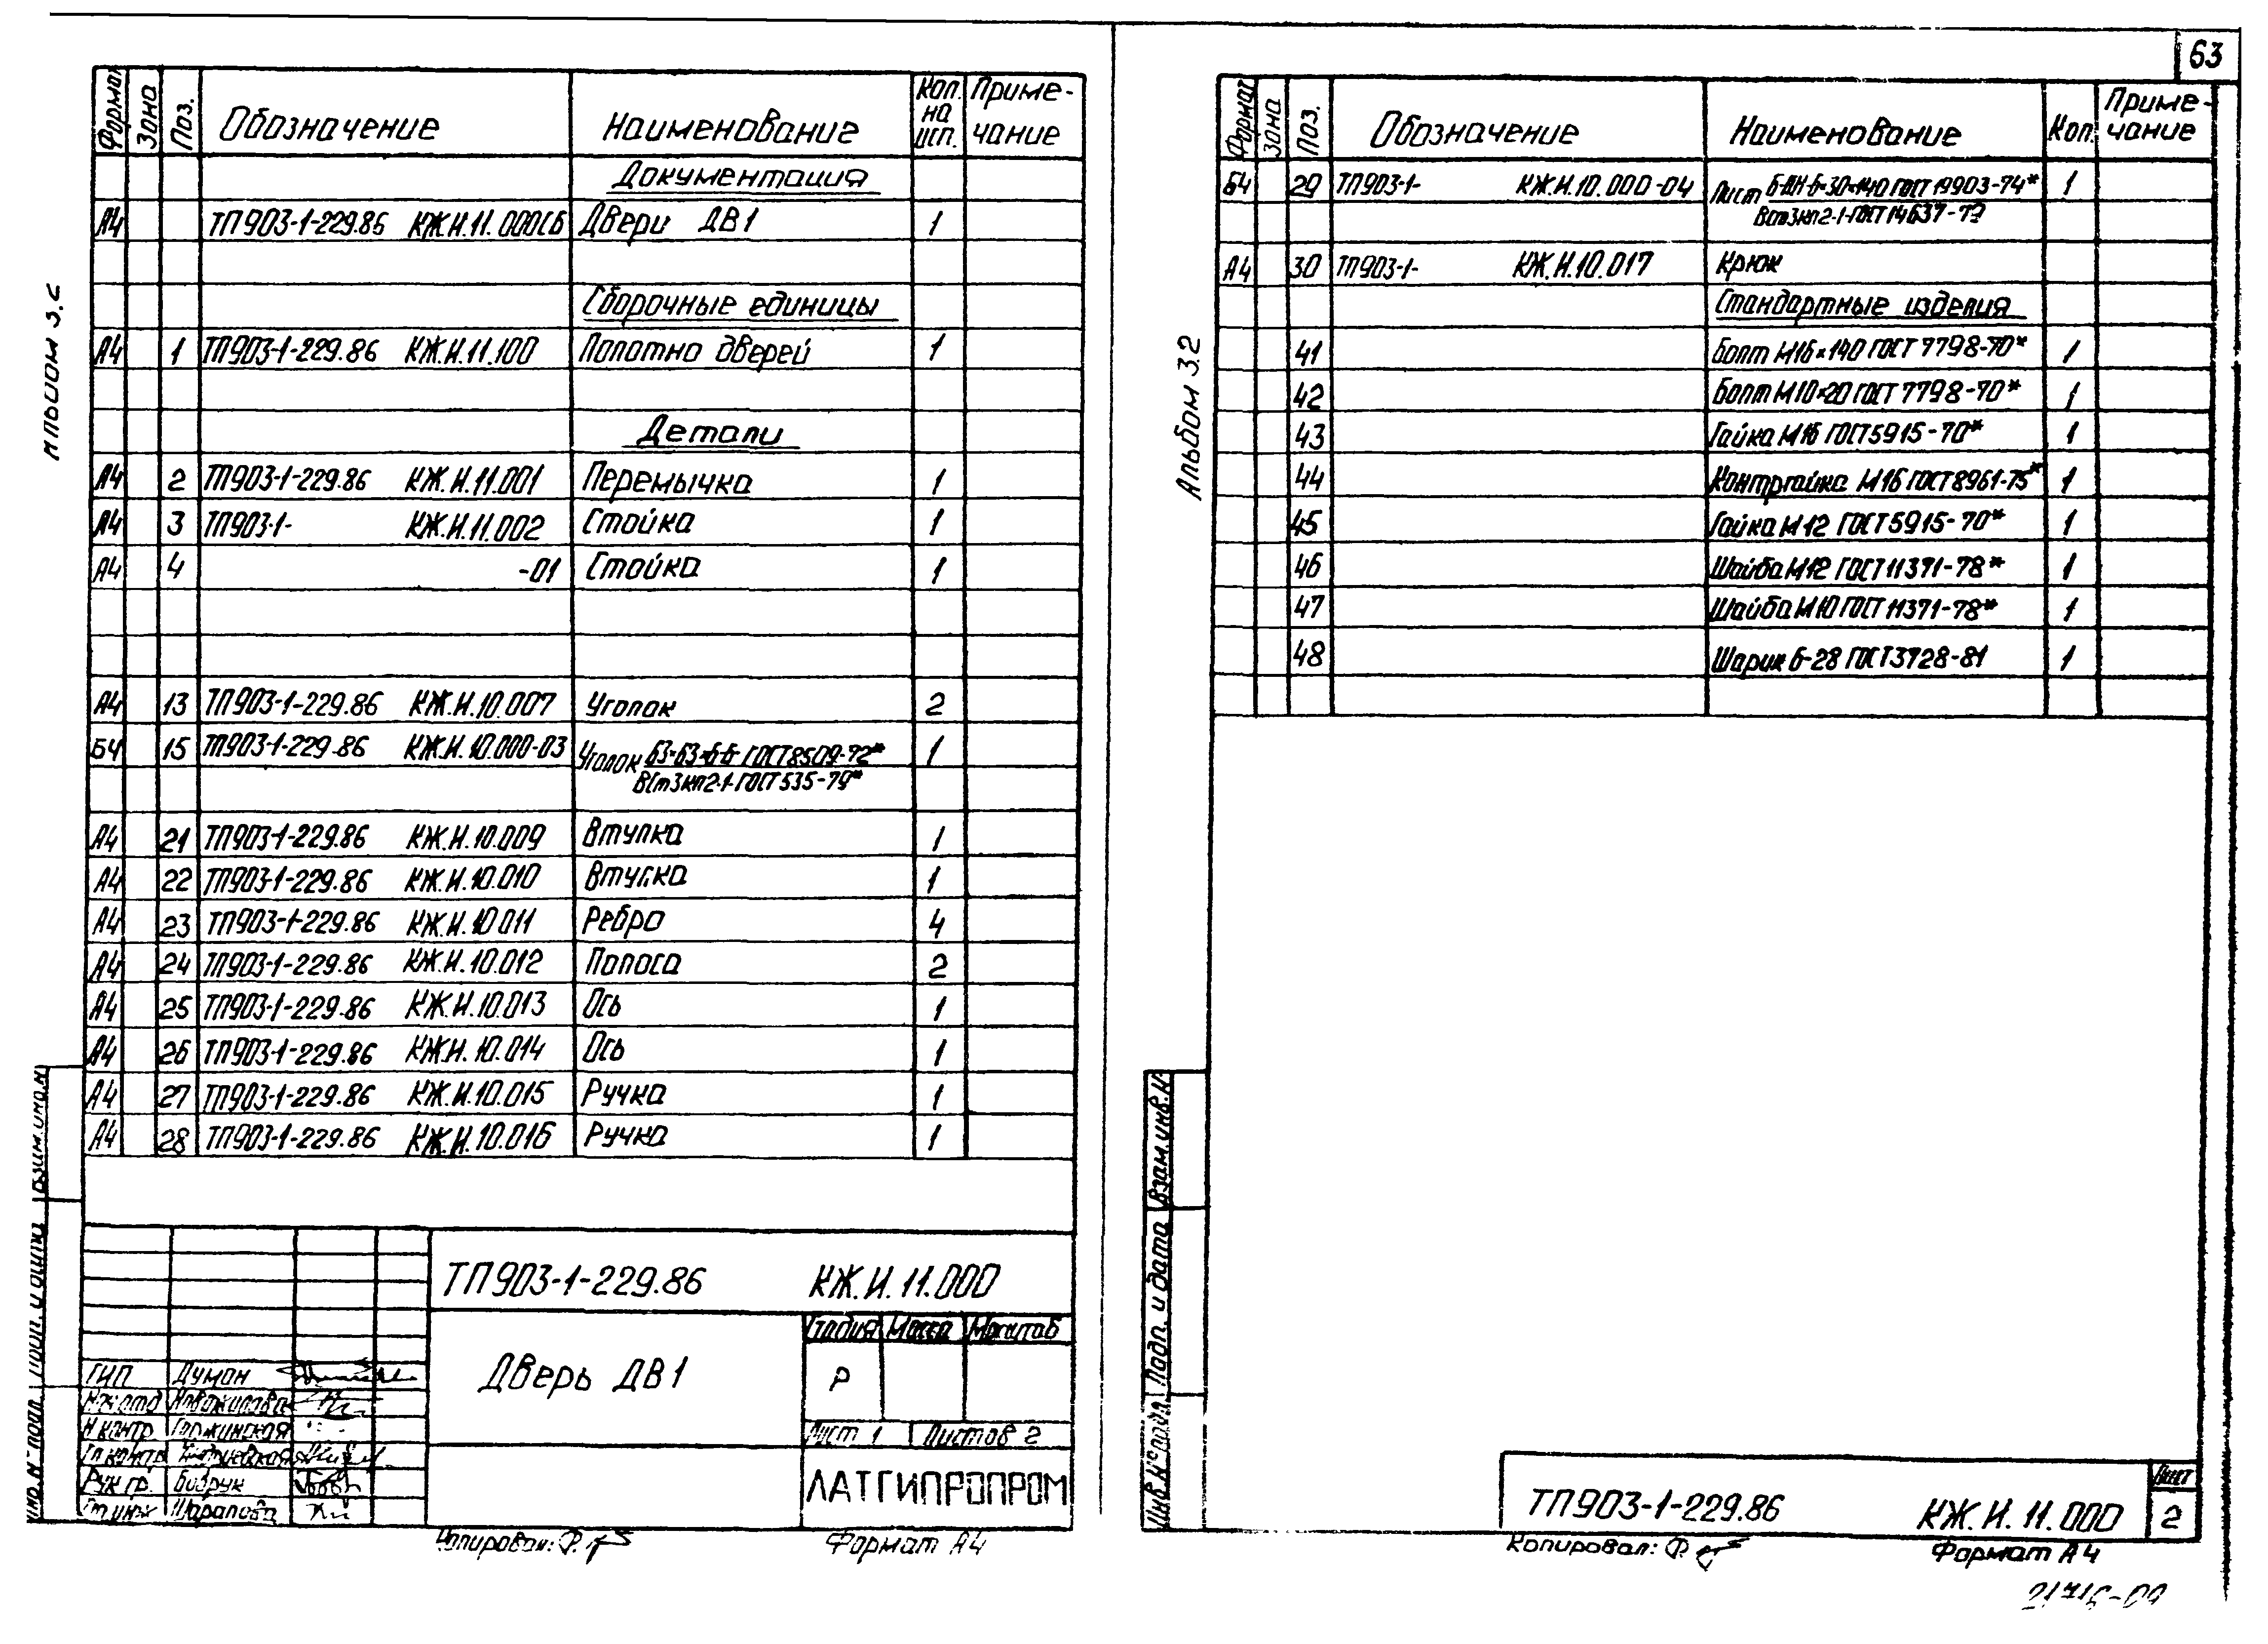 63
Альбом 3.2
Формат Зона Поз. Обозначение Наименование Кол. на исп. Примечание
Документация
А4 ТП903-1-229.86 КЖ.И.11.000СБ Двери ДВ1 1
Сборочные единицы
А4 1 ТП903-1-229.86 КЖ.И.11.100 Полотно дверей 1
Детали
А4 2 ТП903-1-229.86 КЖ.И.11.001 Перемычка 1
А4 3 ТП903-1- КЖ.И.11.002 Стойка 1
А4 4 -01 Стойка 1
А4 13 ТП903-1-229.86 КЖ.И.10.007 Уголок 2
Б4 15 ТП903-1-229.86 КЖ.И.10.000-03 Уголок 63×63×6-Б ГОСТ 8509-72* 1
ВСт3кп2-1-ГОСТ 535-79*
А4 21 ТП903-1-229.86 КЖ.И.10.009 Втулка 1
А4 22 ТП903-1-229.86 КЖ.И.10.010 Втулка 1
А4 23 ТП903-1-229.86 КЖ.И.10.011 Ребро 4
А4 24 ТП903-1-229.86 КЖ.И.10.012 Полоса 2
А4 25 ТП903-1-229.86 КЖ.И.10.013 Ось 1
А4 26 ТП903-1-229.86 КЖ.И.10.014 Ось 1
А4 27 ТП903-1-229.86 КЖ.И.10.015 Ручка 1
А4 28 ТП903-1-229.86 КЖ.И.10.016 Ручка 1
ТП903-1-229.86 КЖ.И.11.000
Дверь ДВ1
Стадия Масса Масштаб
Р
Лист 1 Листов 2
ЛАТГИПРОПРОМ
ГИП Думан
Нач.отд Новожилова
Н.контр.
Гл.контр
Рук.гр. Бидрук
Ст.инж Шарапова
Взам.инв.N
Подп. и дата
Инв.N° подл.
Копировал: Ф.
Формат А4
Альбом 3.2
Формат Зона Поз. Обозначение Наименование Кол. Примечание
Б4 29 ТП903-1- КЖ.И.10.000-04 Лист Б-ПН-6×30×140 ГОСТ 19903-74* 1
ВСт3кп2-1-ГОСТ 14637-79
А4 30 ТП903-1- КЖ.И.10.017 Крюк
Стандартные изделия
41 Болт М16×140 ГОСТ 7798-70* 1
42 Болт М10×20 ГОСТ 7798-70* 1
43 Гайка М16 ГОСТ 5915-70* 1
44 Контргайка М16 ГОСТ 8961-75* 1
45 Гайка М12 ГОСТ 5915-70* 1
46 Шайба М12 ГОСТ 11371-78* 1
47 Шайба М10 ГОСТ 11371-78* 1
48 Шарик Б-28 ГОСТ 3728-81 1
Взам.инв.N
Подп. и дата
Инв.N° подл.
ТП903-1-229.86 КЖ.И.11.000
Лист
2
Копировал: Ф.
Формат А4